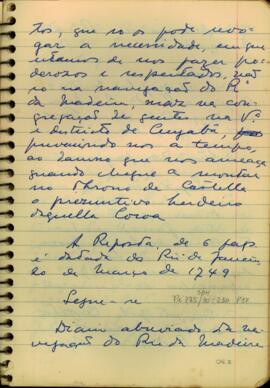 tos, que só os pode revo-
gar a necessidade, em que
estamos de nos fazer po-
derosos e respeitados, não
só na navegação do Rº
da Madeira, mas na con-
gregação de gentes na Vª
e districto de Cuyabá,
prevenindo nos a tempo,
ao damno que nos ameaça
quando chegue a montar
no Throno de Castella
o presumptivo herdeiro
daquella Coroa
A Reposta, de 6 pags.
é datada do Rio de Janeiro
20 de Março de 1749
Segue-se
Diario abreviado da na-
vegação do Rio da Madeira